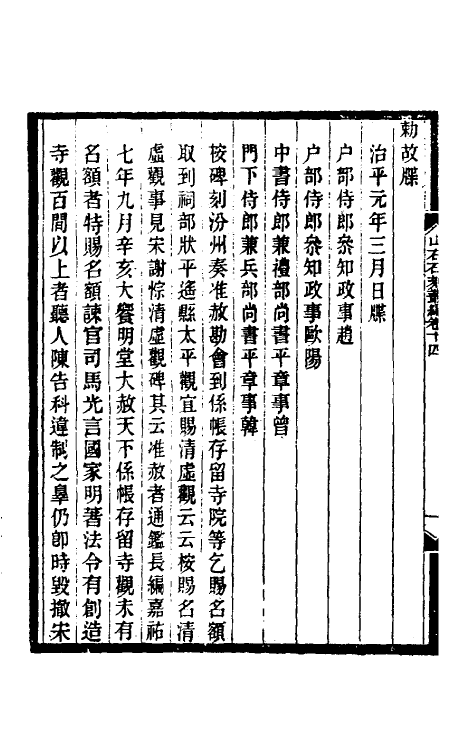 勅故牒
治平元年三月日牒
戸部侍郎叅知政事趙
戸部侍郎叅知政事歐陽
中書侍郎兼禮部尚書平章事曾
門下侍郎兼兵部尚書平章事韓
桉碑刻汾州奏准赦勘會到係帳存留寺院等乞賜名額
取到祠部狀平遙縣太平觀宜賜清虛觀云云桉賜名清
虛觀事見宋謝悰清虛觀碑其云准赦者通鑑長編嘉祐
七年九月辛亥大饗明堂大赦天下係帳存留寺觀未有
名額者特賜名額諫官司馬光言國家明著法令有創造
寺觀百間以上者聽人陳告科違制之辠仍卽時毀撤宋
山右石刻叢編卷十四
一